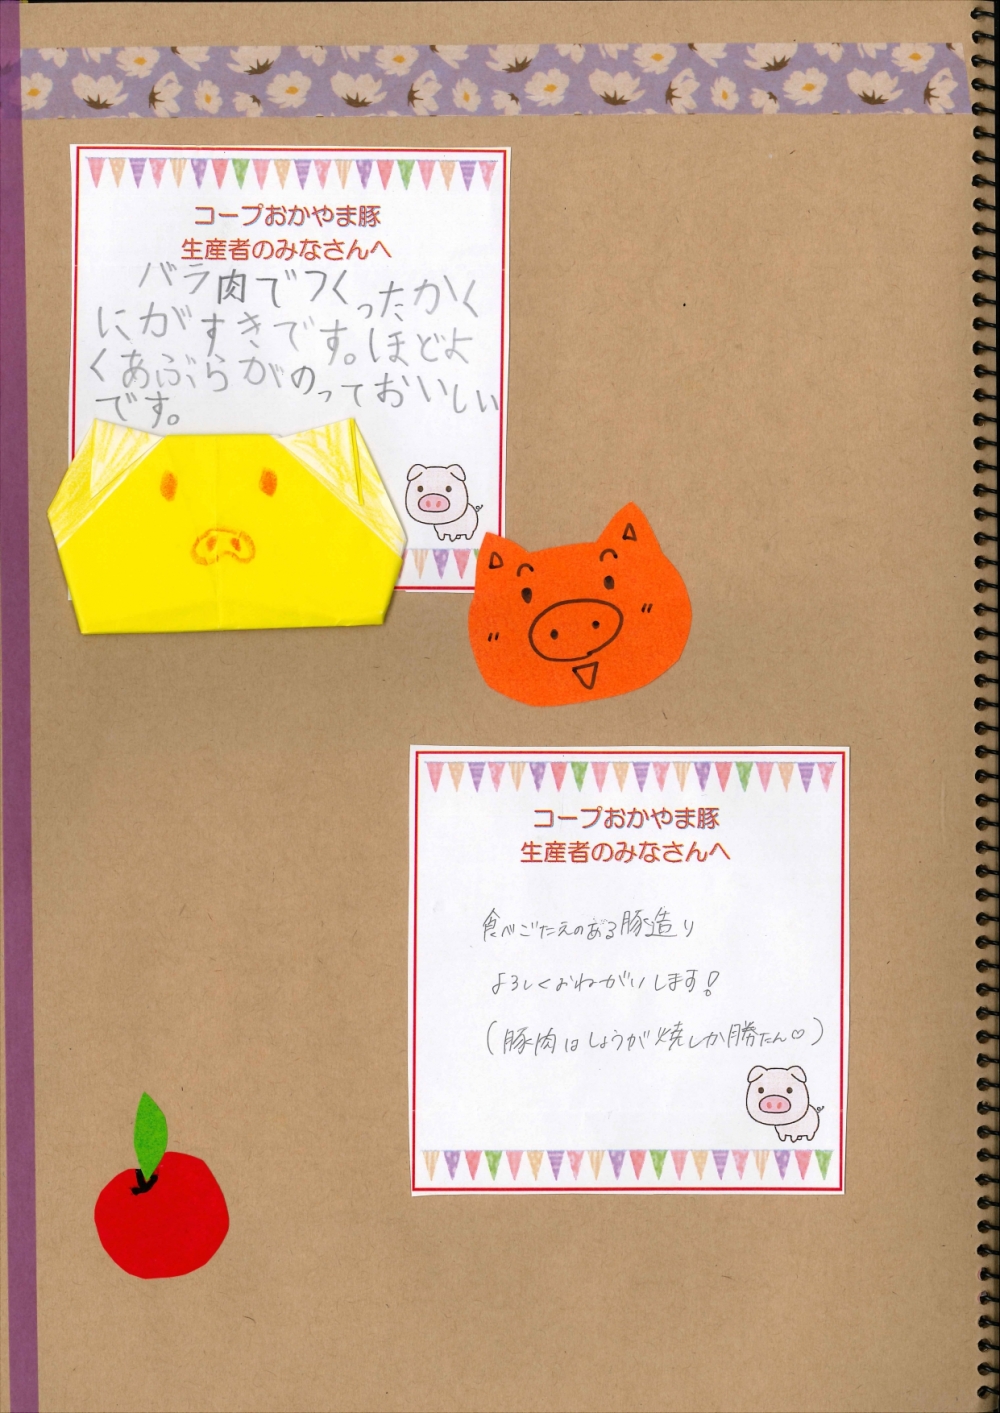 コープおかやま豚
生産者のみなさんへ
バラ肉でつくったかく
にがすきです。ほどよ
くあぶらがのっておいしい
です。
コープおかやま豚
生産者のみなさんへ
食べごたえのある豚造り
よろしくおねがいします!
(豚肉はしょうが焼しか勝たん♡)